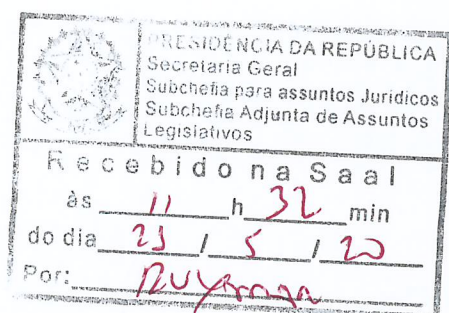 PRESIDÊNCIA DA REPÚBLICA
Secretaria Geral
Subchefia para assuntos Jurídicos
Subchefia Adjunta de Assuntos
Legislativos
Recebido na Saal
às 11 h 32 min
do dia / 5 / 20
Por: